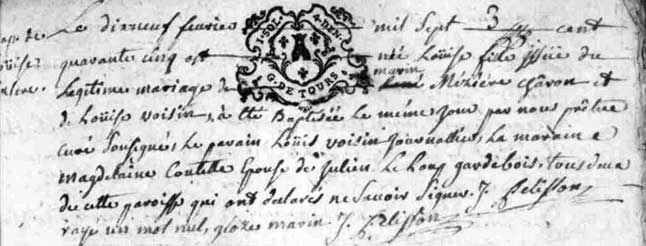 Le dixneuf fevrier mil Sept cent
quarante cinq est née Loüise fille issüe du
legitime mariage de marin René Meziere charon et
de Loüise voisin, a été Baptisée le même Jour par nous prêtre
curé Soussigné, Le parain Loüis voisin Journallier, La maraine
magdelaine Coutelle Epouse de Julien Le Long gardebois, tous deux
de cette paroisse qui ont déclarés ne Scavoir Signer. J. Pelisson
rayé un mot nul, gloze marin. J. Pelisson
SOL 4 DEN
G. DE TOURS